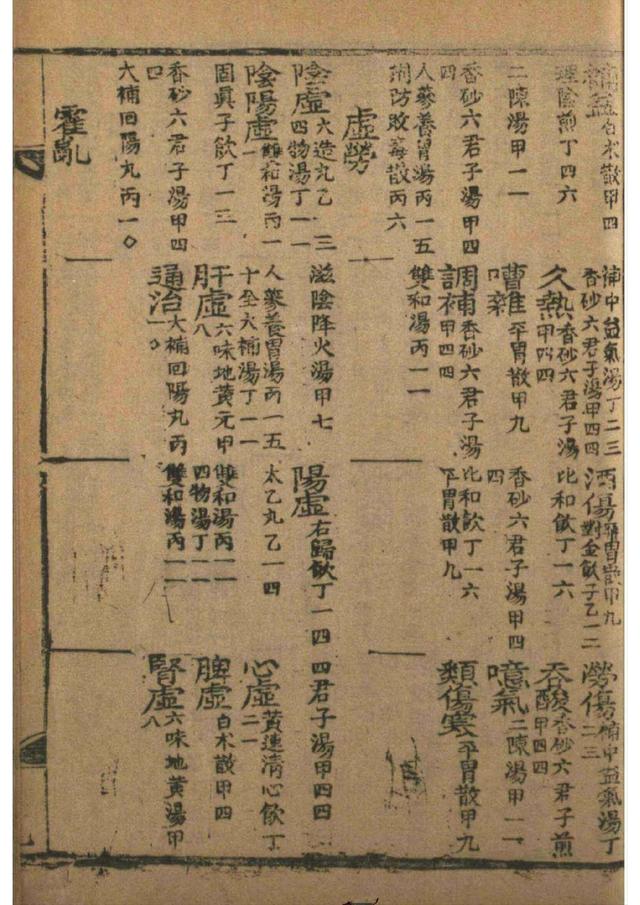 補益 白朮散甲四
理陰煎丁四六
二陳湯甲一一
香砂六君子湯甲四四
人蔘養胃湯丙一五
荊防敗毒散丙六
補中益氣湯丁二三
香砂六君子湯甲四四
久熱 香砂六君子湯甲四四
嘈雜 平胃散甲九
調補 香砂六君子湯甲四四
雙和湯丙一一
酒傷 平胃散甲九
對金飮子乙一二
比和飮丁一六
香砂六君子湯甲四四
比和飮丁一六
平胃散甲九
勞傷 補中益氣湯丁二三
吞酸 香砂六君子煎甲四四
噫氣 二陳湯甲一一
類傷寒 平胃散甲九
虛勞
陰虛 六造丸乙一三
四物湯丁一一
陰陽虛 雙和湯丙一一
固眞子飮丁一三
香砂六君子湯甲四四
大補回陽丸丙一〇
滋陰降火湯甲七
人蔘養胃湯丙一五
十全大補湯丁一一
肝虛 六味地黃元甲八
通治 大補回陽丸丙一〇
陽虛 右歸飮丁一四
太乙丸乙一四
雙和湯丙一一
四物湯丁一一
雙和湯丙一一
四君子湯甲四四
心虛 黃連淸心飮丁二一
脾虛 白朮散甲四
腎虛 六味地黃湯甲八
霍亂